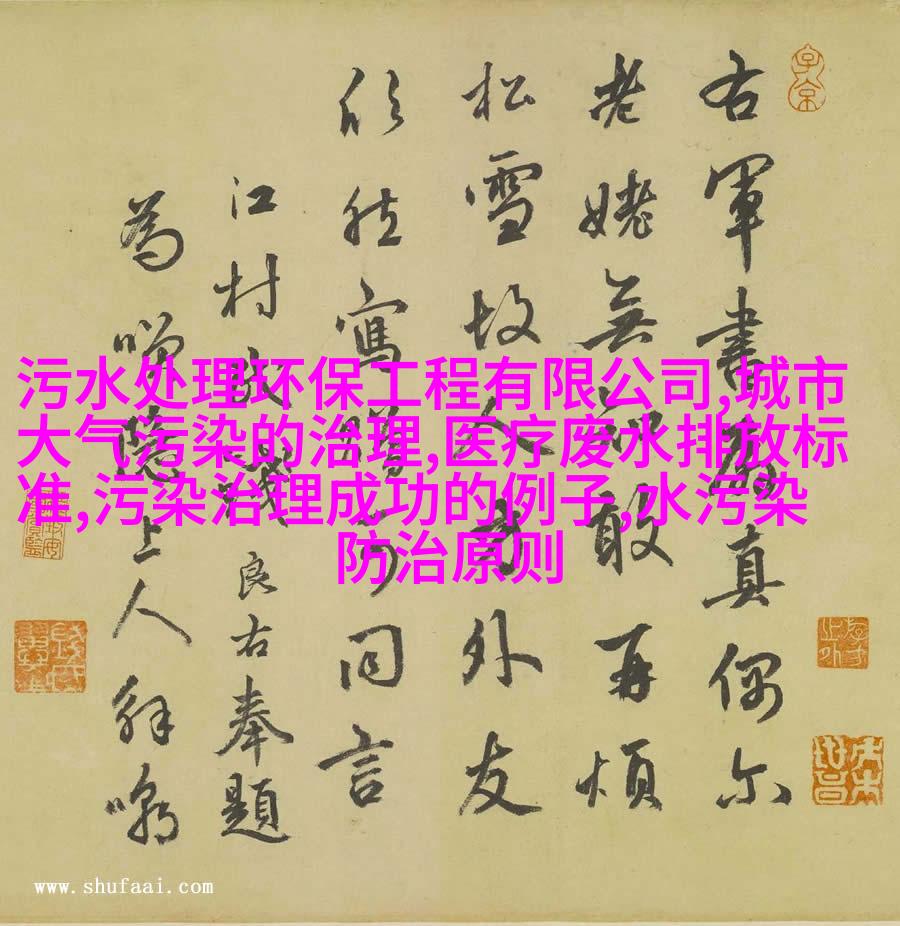 污水处理环保工程有限公司,城市
大气污染的治理,医疗废水排放标
准,污染治理成功的例子,水污染
防治原则
右軍書扇真偶尔
老姥無敢再煩
松雪故人方外友
欣然寫贈同言
江村良右奉題
為隱上人解嘲
www.shufaai.com